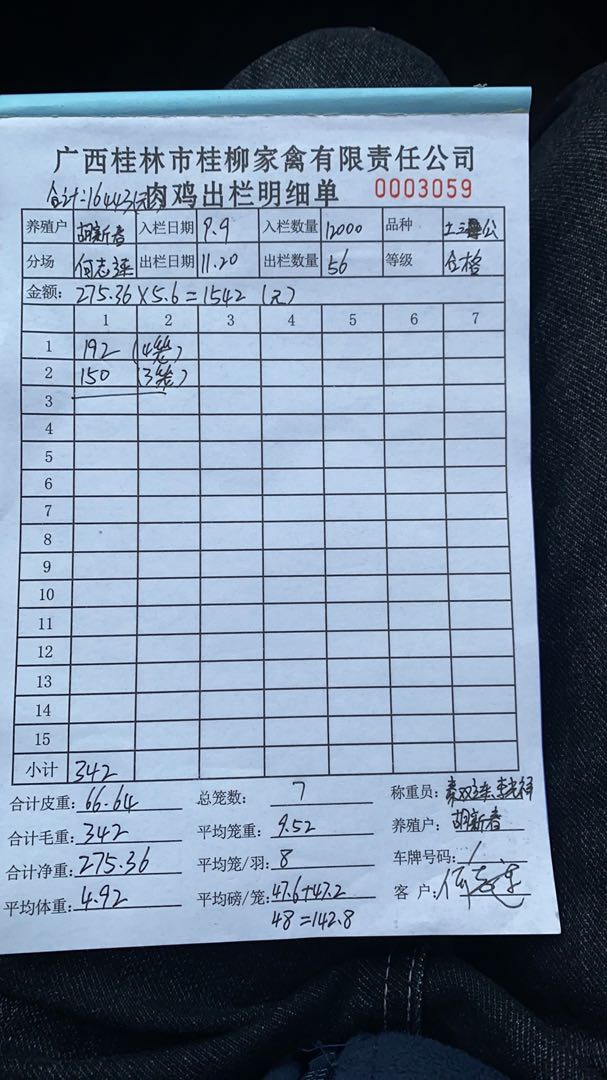 广西桂林市桂柳家禽有限责任公司
合计:16443元 肉鸡出栏明细单 0003059
养殖户 胡新春 入栏日期 9.9 入栏数量 12000 品种 公
分场 出栏日期 11.20 出栏数量 56 等级 合格
金额: 275.36×5.6=1542(元)
1 2 3 4 5 6 7
1 192 (4笼)
2 150 (3笼)
3
4
5
6
7
8
9
10
11
12
13
14
15
小计 342
合计皮重: 66.64 总笼数: 7 称重员:
合计毛重: 342 平均笼重: 9.52 养殖户: 胡新春
合计净重: 275.36 平均笼/羽: 8 车牌号码: /
平均体重: 4.92 平均磅/笼: 47.6+47.2 客户:
48=142.8